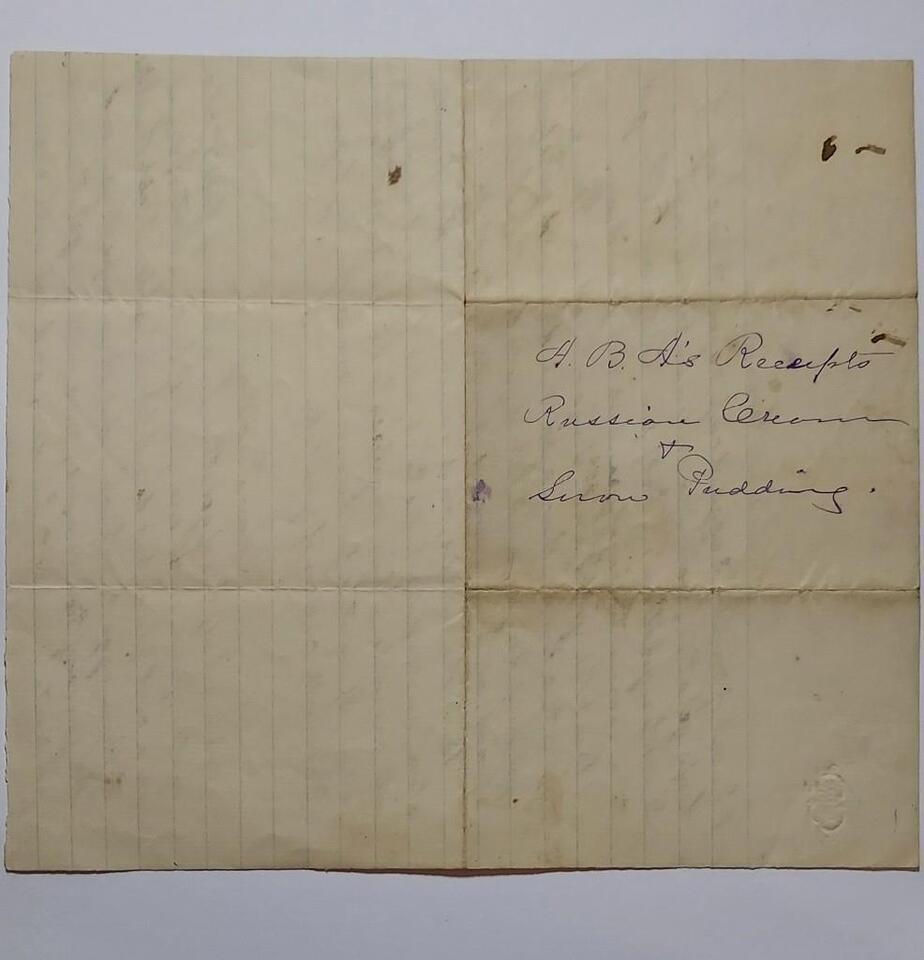 A. B. A's Receipts
Russian Cream
&
Snow Pudding.